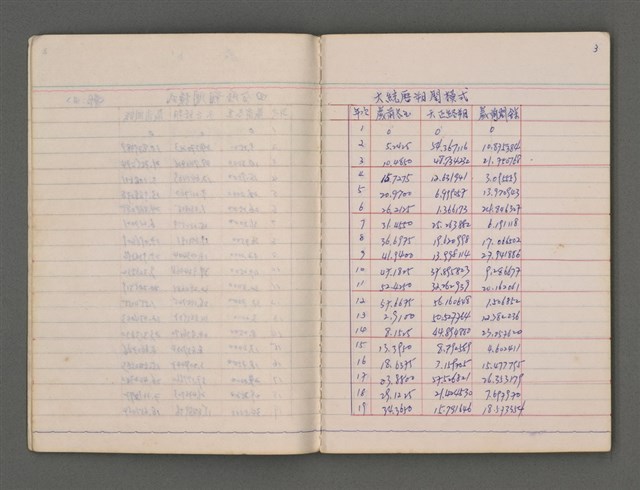 3
大統历相関模式
年次 歲前冬至 天正経朔 歲前閏餘
1 0 0 0
2 5.2425 54.367116 10.875384
3 10.4850 48.734232 21.750768
4 15.7275 12.631941 3.095559
5 20.9700 6.999057 13.970943
6 26.2125 1.366173 24.846327
7 31.4550 25.263882 6.191118
8 36.6975 19.630998 17.066502
9 41.9400 13.998114 27.941886
10 47.1825 37.895823 9.286677
11 52.4250 32.262939 20.162061
12 57.6675 56.160648 1.506852
13 2.9100 50.527764 12.382236
14 8.1525 44.894880 23.257620
15 13.3950 8.792589 4.602411
16 18.6375 3.159705 15.477795
17 23.8800 57.526821 26.353179
18 29.1225 21.424530 7.697970
19 34.3650 15.791646 18.573354